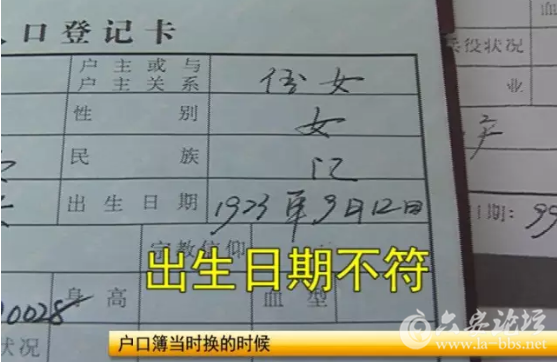 口登记卡
户主或与
户主关系
侄女
兵役状况
性别
女
业
民族
汉
出生日期
1973年9月12日
日期：99
宗教信仰
出生日期不符
0028
身高
血型
六安论坛
www.la-bbs.net
户口簿当时换的时候